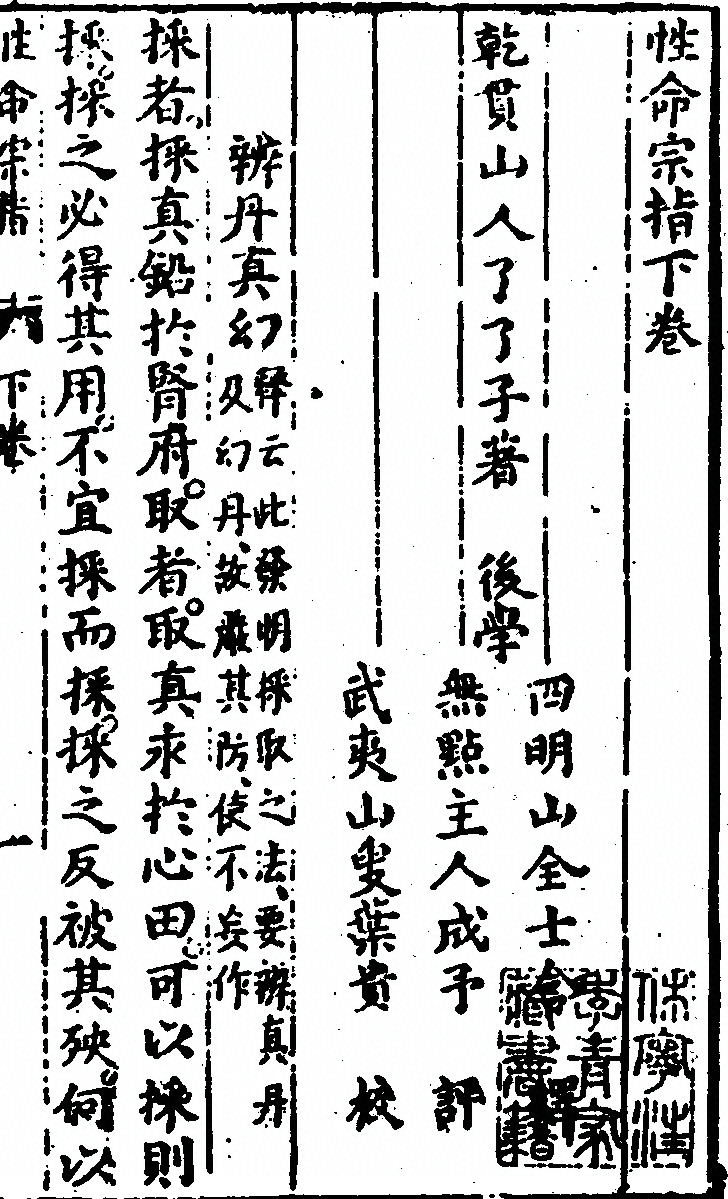 性命宗指下卷
乾貫山人了了子著　後學
四明山全士　釋
無㸃主人成予　評
武夷山叟葉貴　校
辨丹真幻
釋云此發明採取之法、要辨真丹
及幻丹、故嚴其防、使不妄作
採者、採真鉛於腎府取者取真汞於心田可以採則
採採之必得其用不宜採而採採之反被其殃何以
性命宗指　下卷　一